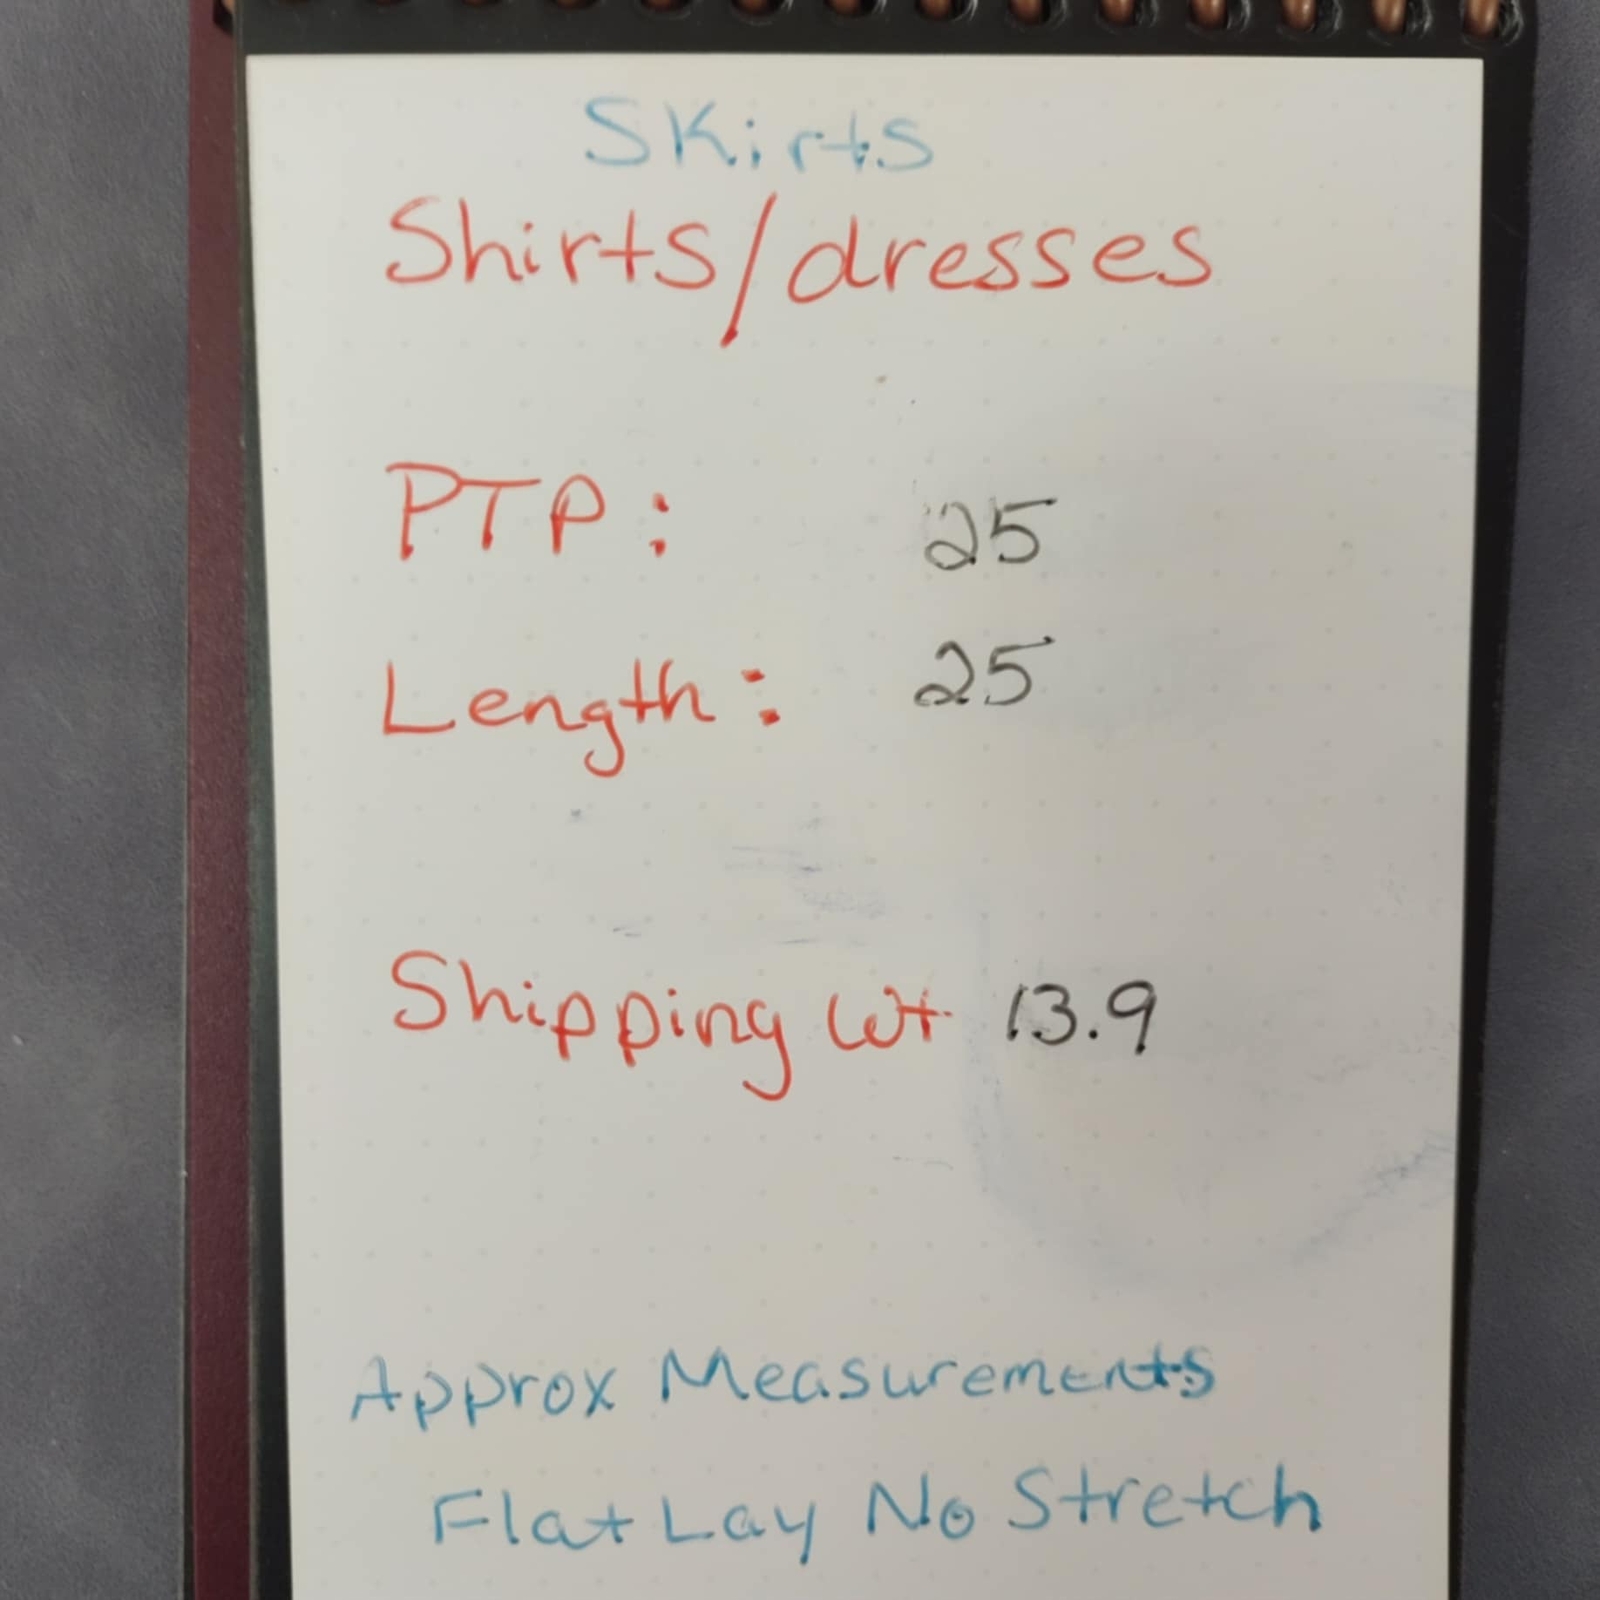 Skirts
Shirts/dresses
PTP: 25
Length: 25
Shipping wt 13.9
Approx Measurements
Flat Lay No Stretch